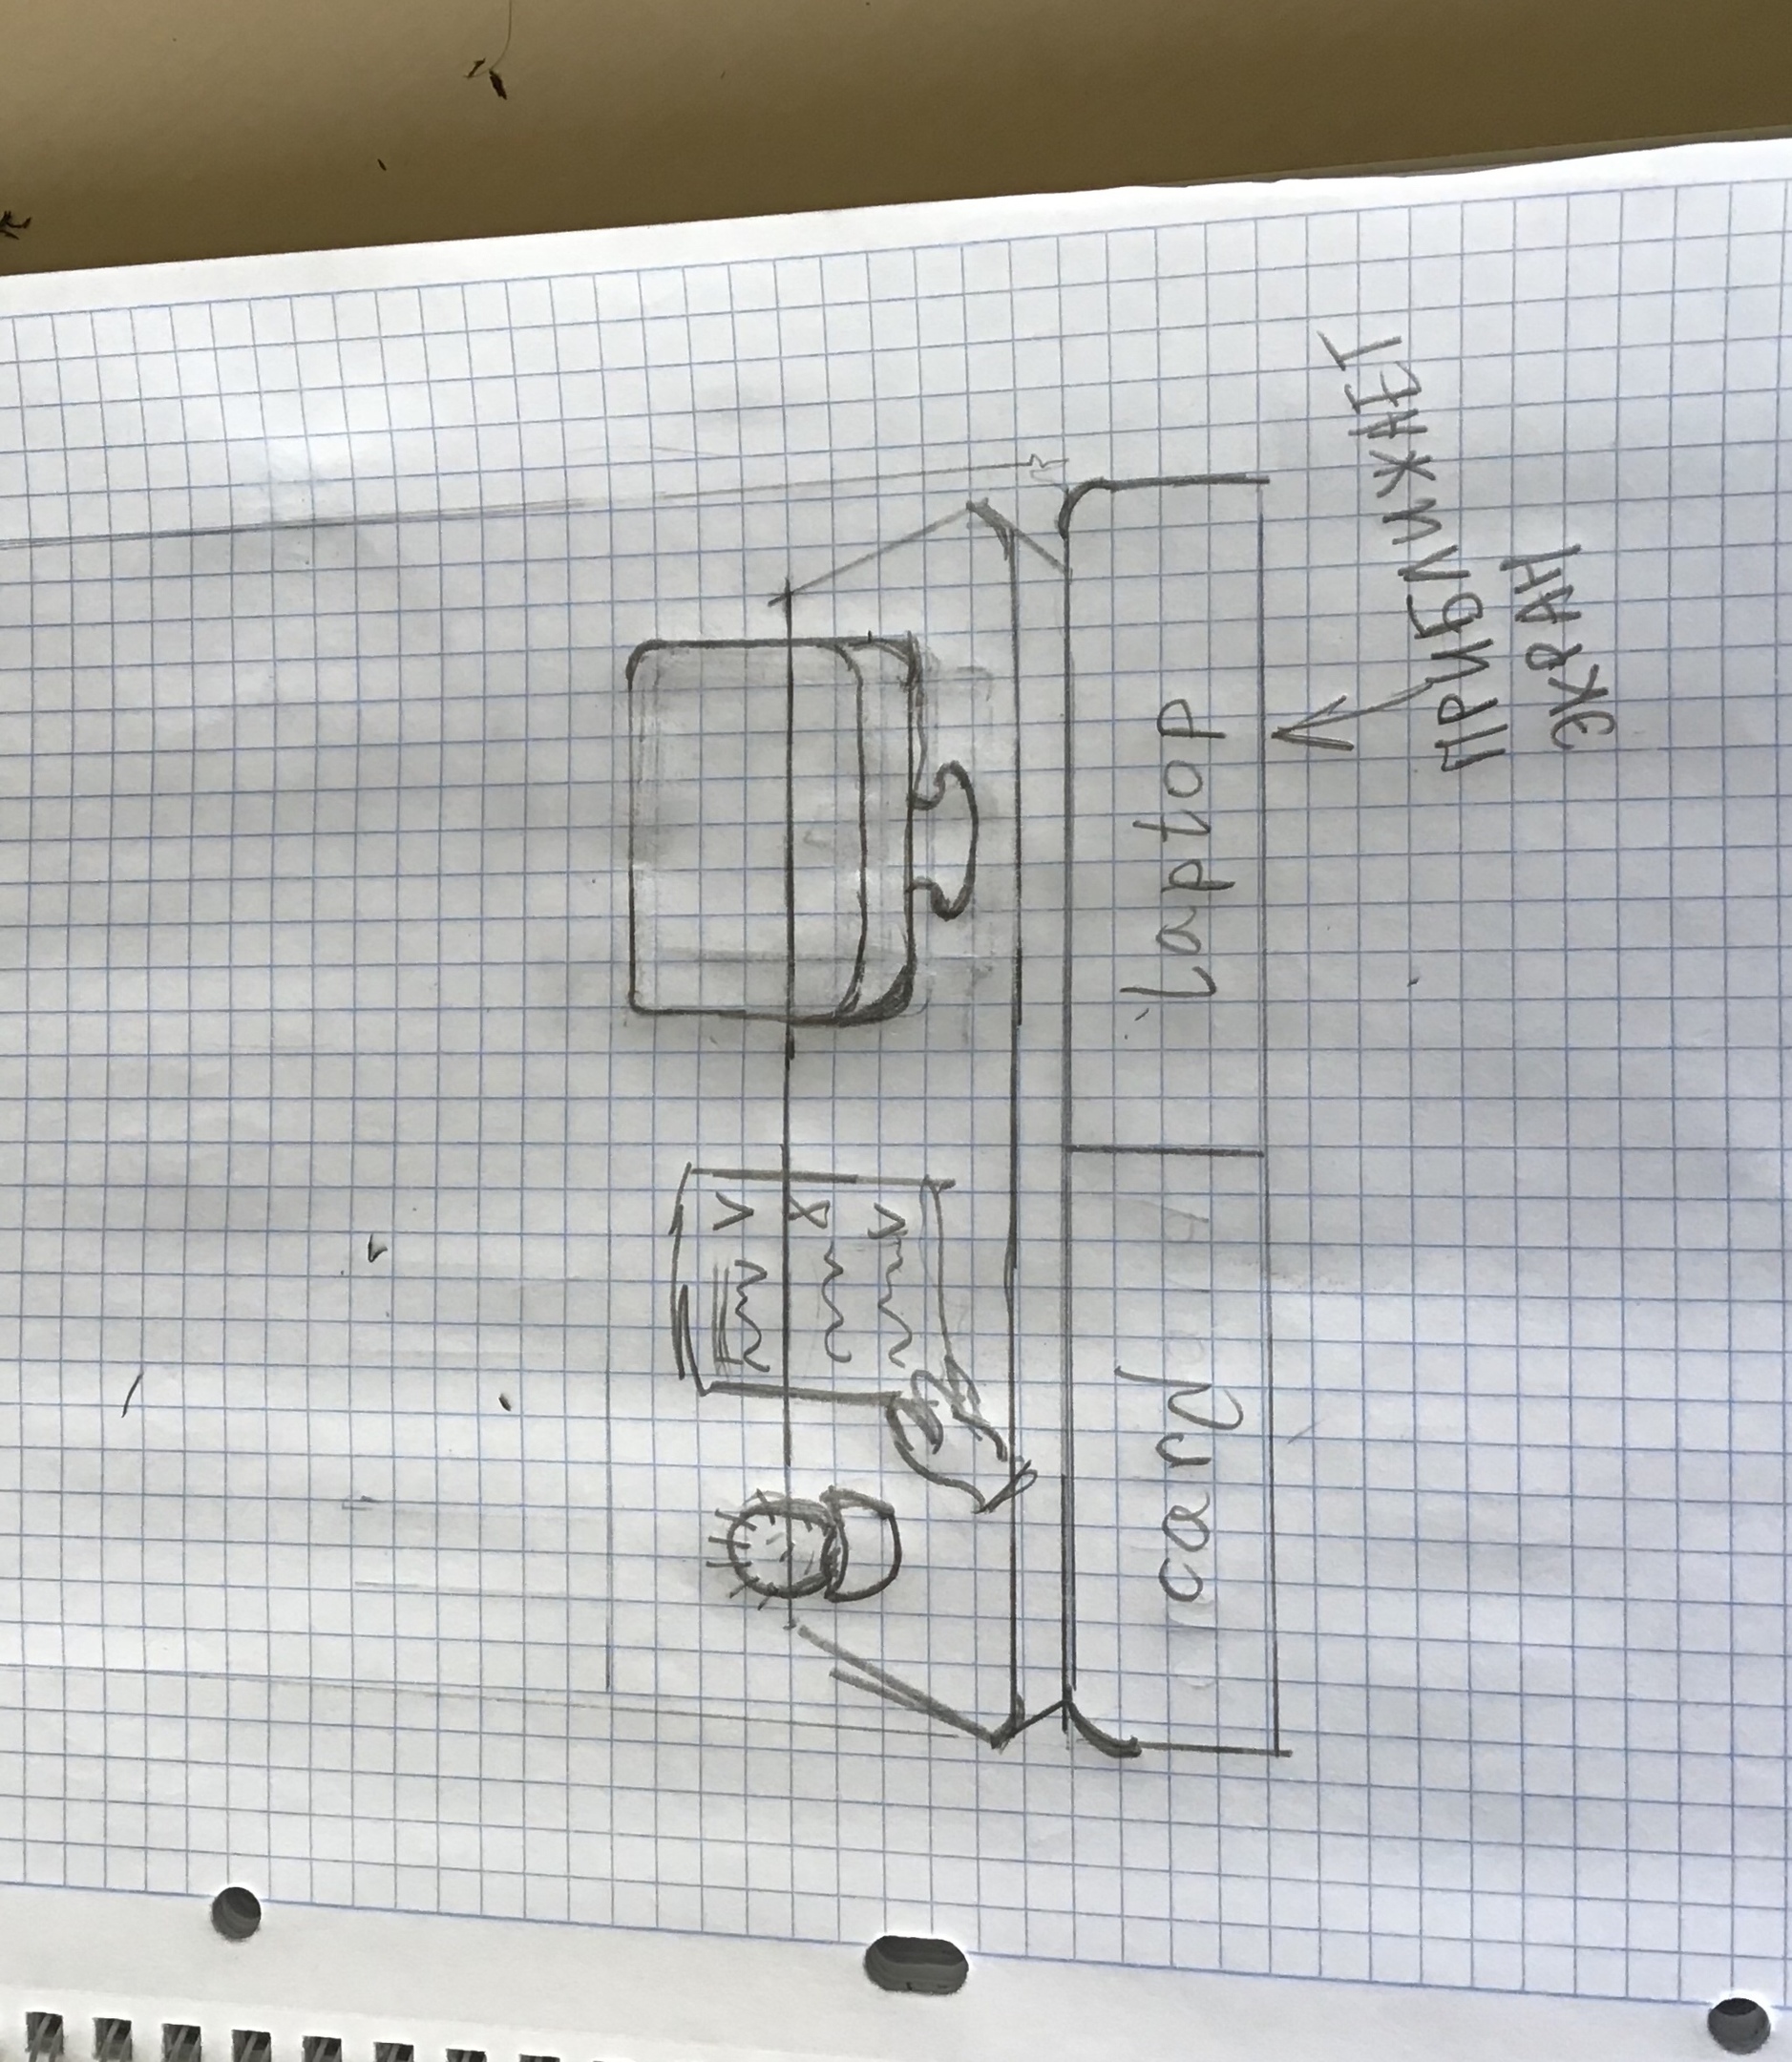 V
X
V
card
laptop
ПРИБЛИЖАЕТ
ЭКРАН